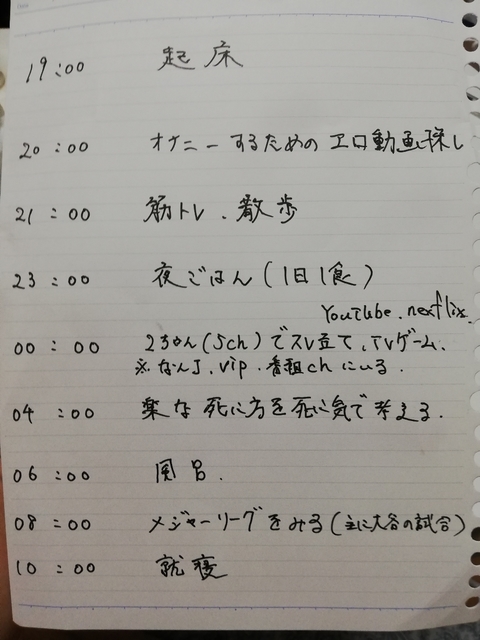 19:00 起床
20:00 オナニーするためのエロ動画探し
21:00 筋トレ、散歩
23:00 夜ごはん(1日1食)
YouTube.nexflix.
00:00 2ちゃん(5ch)でスレ立て、TVゲーム.
※.なんJ.vip.番組chにいる.
04:00 楽な死に方を死に気で考える.
06:00 風呂.
08:00 メジャーリーグをみる(主に大谷の試合)
10:00 就寝